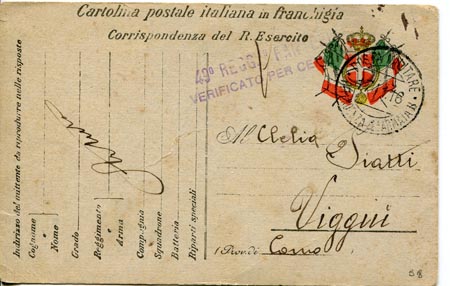 Cartolina postale italiana in franchigia
Corrispondenza del R. Esercito
49° REGG.
VERIFICATO PER CE
POSTA MILITARE
18
Al Clelia
Piatti
Viggiù
(Prov. di Como
Indirizzo del mittente da riprodurre nelle risposte
Cognome
Nome
Grado
Reggimento
Arma
Compagnia
Squadrone
Batteria
Riparti speciali
58